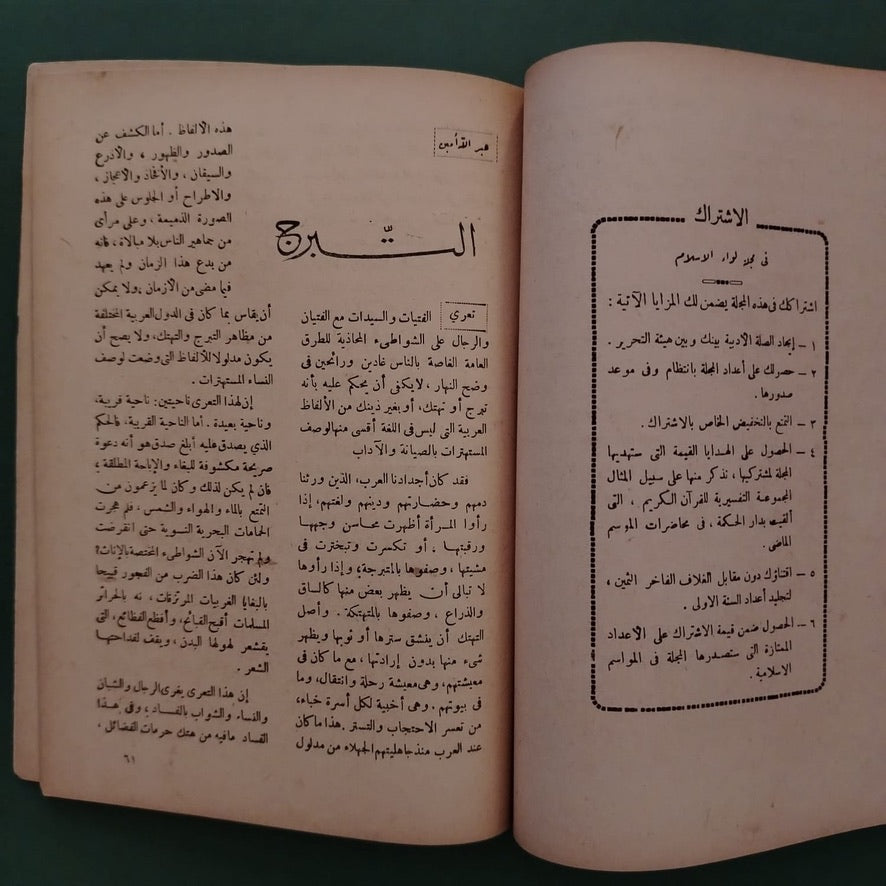 الاشتراك
فى مجلة لواء الاسلام
اشتراكك فى هذه المجلة يضمن لك المزايا الآتية :
١ — إيجاد الصلة الأدبية بينك وبين هيئة التحرير .
٢ — حصولك على أعداد المجلة بانتظام وفى موعد
صدورها .
٣ — التمتع بالتخفيض الخاص بالاشتراك .
٤ — الحصول على الهدايا القيمة التى ستهديها
المجلة لمشتركيها ، نذكر منها على سبيل المثال
المجموعة التفسيرية للقرآن الكريم ، التى
ألقيت بدار الحكمة ، فى محاضرات الموسم
الماضى .
٥ — اقتناؤك دون مقابل الغلاف الفاخر الثمين ،
لتجليد أعداد السنة الاولى .
٦ — الحصول ضمن قيمة الاشتراك على الاعداد
الممتازة التى ستصدرها المجلة فى المواسم
الاسلامية .
التّبرج
تعرى الفتيات والسيدات مع الفتيان
والرجال على الشواطىء المحاذية للطرق
العامة الغاصة بالناس غادين ورائحين فى
وضح النهار ، لا يكفى أن يحكم عليه بأنه
تبرج أو تهتك ، أو بغير ذينك من الألفاظ
العربية التى ليس فى اللغة أقسى منها لوصف
المستهترات بالصيانة والآداب
فقد كان أجدادنا العرب ، الذين ورثنا
دمهم وحضارتهم ودينهم ولغتهم ، إذا
رأوا المرأة أظهرت محاسن وجهها
ورقبتها ، أو تكسرت وتبخترت فى
مشيتها ، وصفوها بالمتبرجة ، وإذا رأوها
لا تبالى أن يظهر بعض منها كالساق
والذراع ، وصفوها بالمتهتكة . وأصل
التهتك أن ينشق سترها أو ثوبها ويظهر
شىء منها بدون إرادتها ، مع ما كان فى
معيشتهم ، وهى معيشة رحلة وانتقال ، وما
فى بيوتهم . وهى أخبية لكل أسرة خباء ،
من تعسر الاحتجاب والتستر . هذا ما كان
عند العرب منذ جاهليتهم الجهلاء من مدلول
هذه الألفاظ . أما الكشف عن
الصدور والظهور ، والأذرع
والسيقان ، والأفخاذ والاعجاز ،
والاطراح أو الجلوس على هذه
الصورة الذميمة ، وعلى مرأى
من جماهير الناس بلا مبالاة ، فانه
من بدع هذا الزمان ولم يعهد
فيما مضى من الأزمان ، ولا يمكن
أن يقاس بما كان فى الدول العربية المختلفة
من مظاهر التبرج والتهتك ، ولا يصح أن
يكون مدلولا للألفاظ التى وضعت لوصف
النساء المستهترات .
إن لهذا التعرى ناحيتين : ناحية قريبة ،
وناحية بعيدة . أما الناحية القريبة ، فالحكم
الذى يصدق عليه أبلغ صدق هو أنه دعوة
صريحة مكشوفة للبغاء والإباحة المطلقة ،
فان لم يكن لذلك وكان لما يزعمون من
التمتع بالماء والهواء والشمس ، فلم هجرت
الحمامات البحرية النسوية حتى انقرضت
ولم تهجر الآن الشواطىء المختصة بالإناث ؟
ولئن كان هذا الضرب من الفجور قبيحا
بالبغايا الغربيات المرتزقات ، نه بالحرائر
المسلمات أقبح القبائح ، وأفظع الفظائع ، التى
يقشعر لهولها البدن ، ويقف لفداحتها
الشعر .
إن هذا التعرى يغرى الرجال والشبان
والنساء والشواب بالفساد ، وفى هذا
الفساد مافيه من هتك حرمات الفضائل ،
٦١